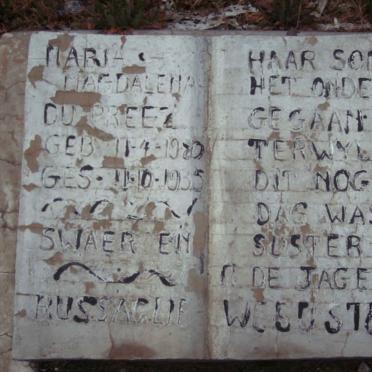 MARIA
MAGDALENA
DU PREEZ
GEB 11-4-1920
GES. 11-10-1935
SWAER EN
HAAR SON
HET ONDE
GEGAAN
TERWYL
DIT NOG
DAG WAS
SUSTER
DE JAGE